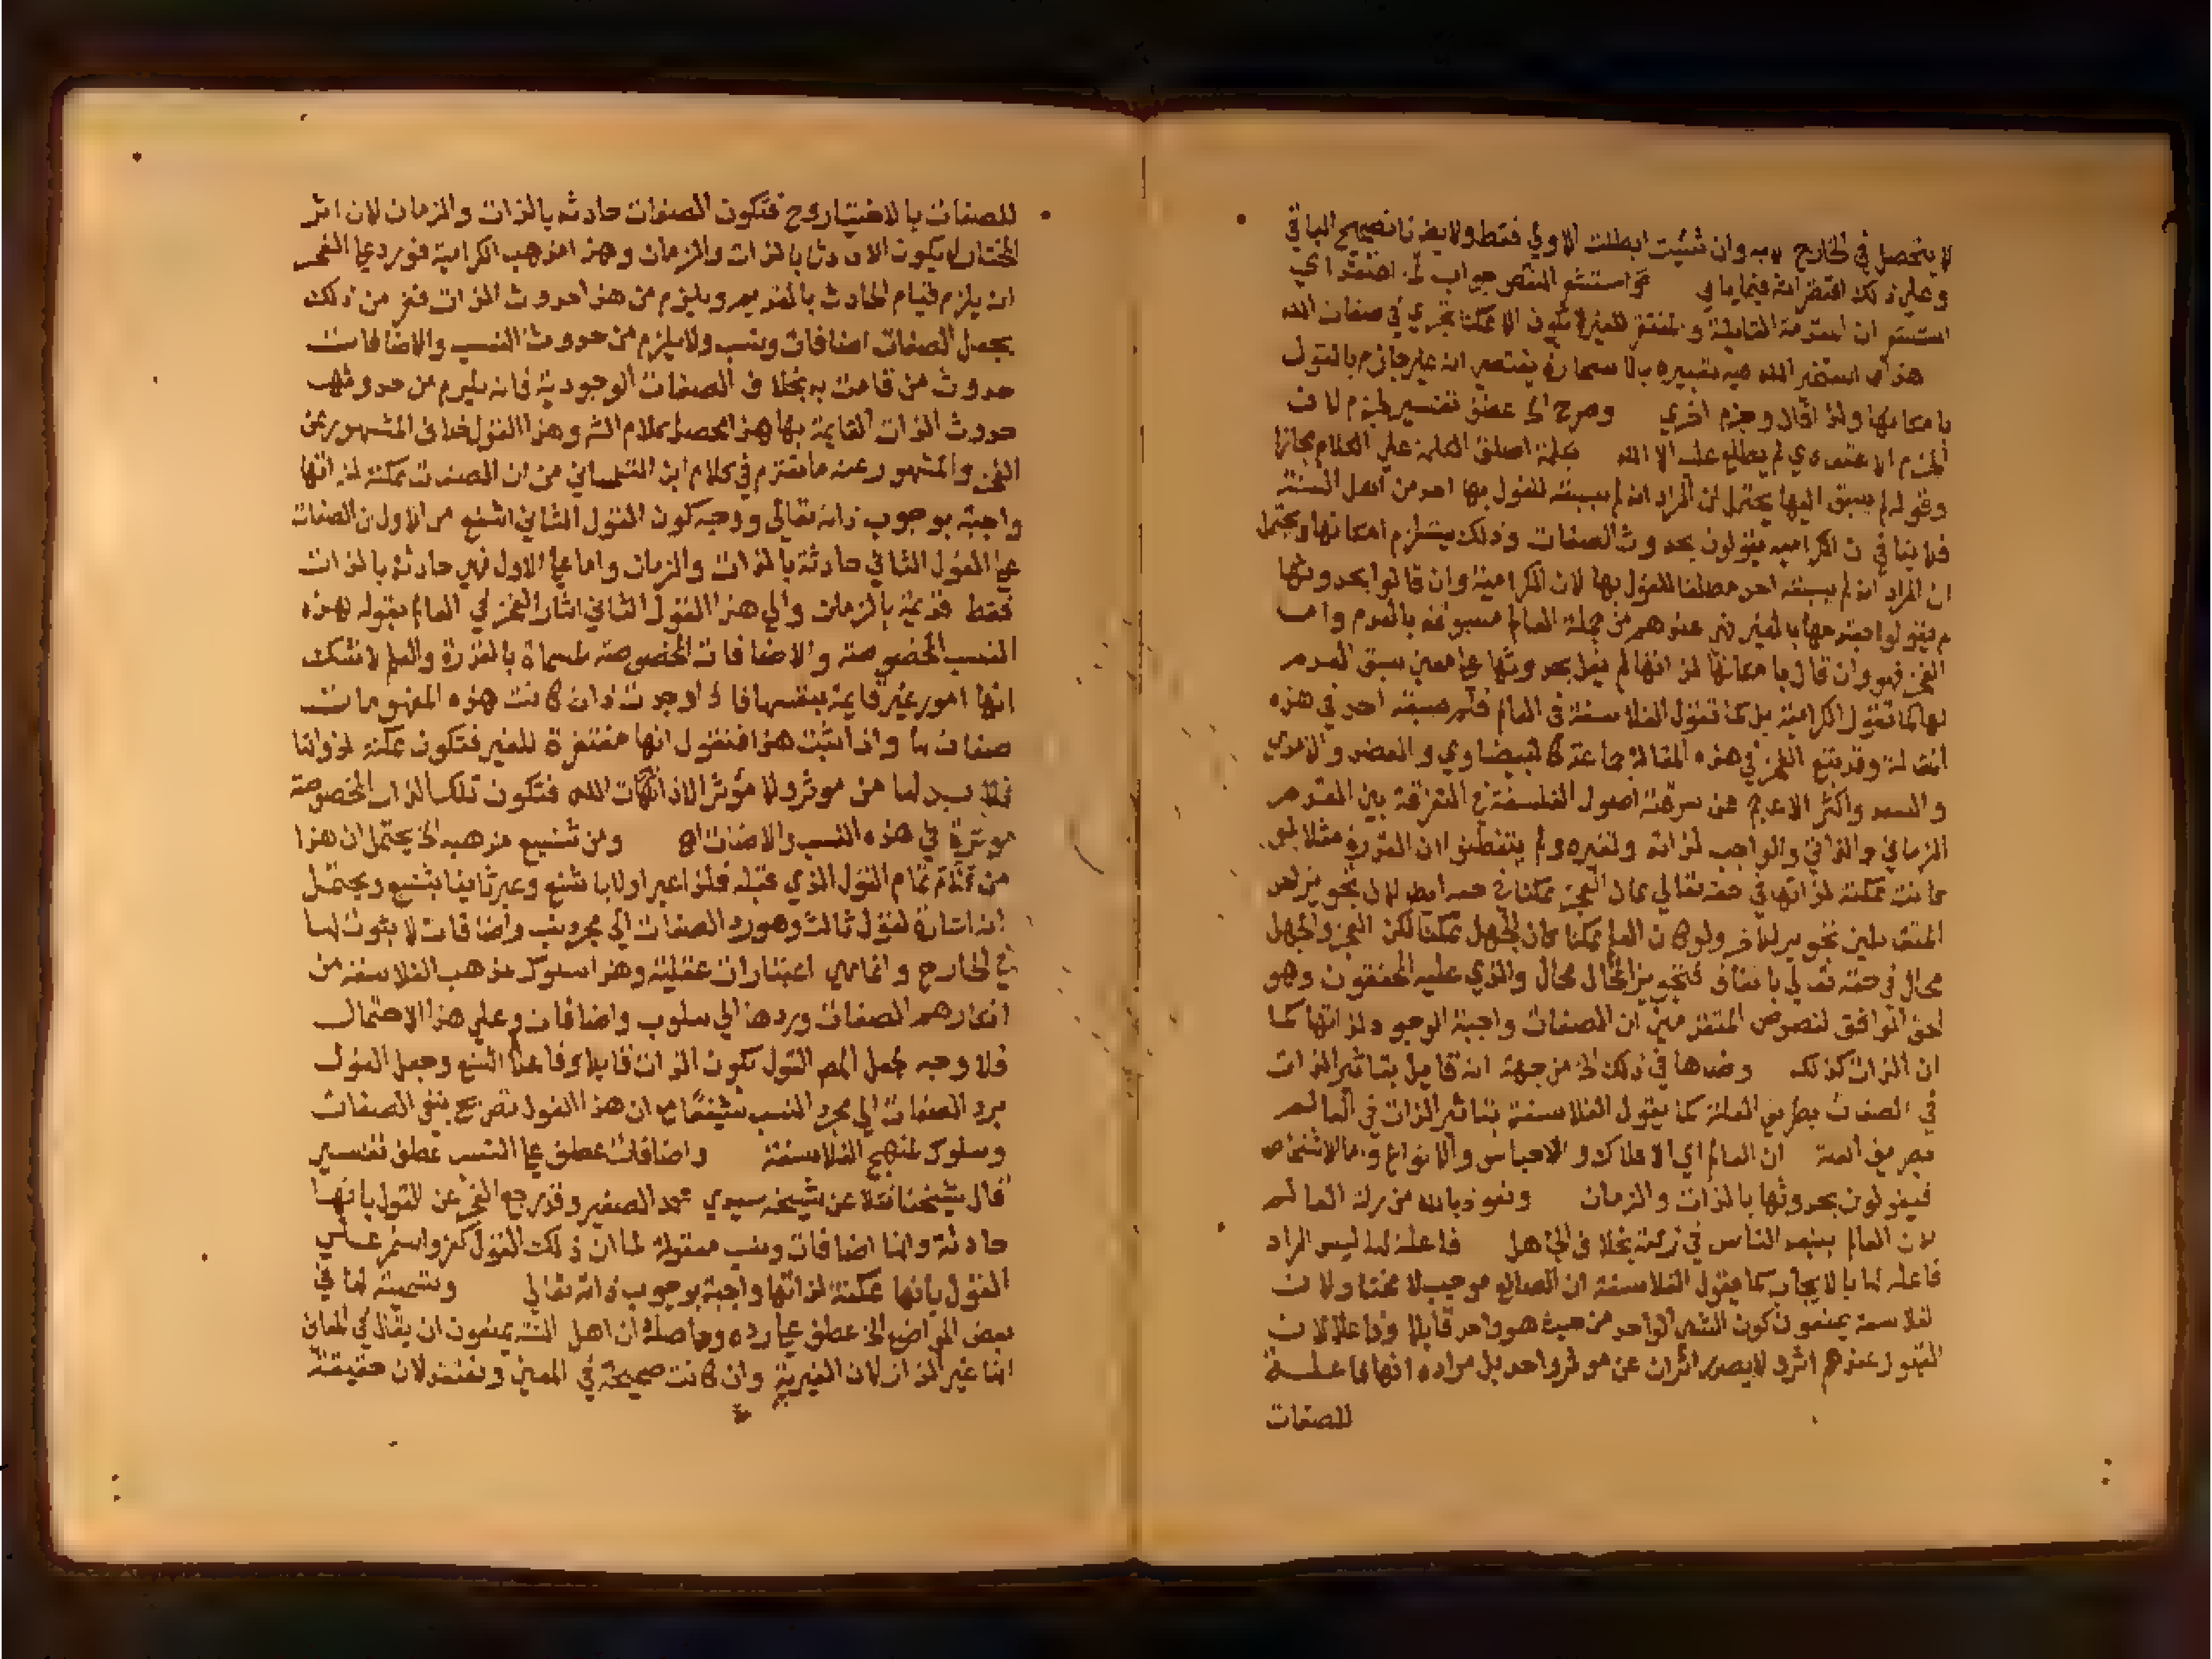 لا يتحصل في الخارج لا به وان شئت ابطلت الاولي فقط ولا يضرنا تصحيح الباقي
وعلي ذلك اقتصر انه فيما ياتي واستشعر النقص جواب لما اعتقد اي
استشعر ان المقدمة القايلة والمفتقر للغير لا يكون الا ممكنا تجري في صفات الله
هذه استغفر الله فيه تعبيره بالاستعارة يقتضي انه غير جازم بالقول
بامكانها ولذا قال وجزم اخري وصرح الخ عطف تفسير للجزم لان
الجزم الاعتقادي لم يطلع عليه الا الله بكلمة اطلق الكلمة علي الكلام مجازا
وقوله لم يسبق اليها يحتمل ان المراد انه لم يسبقه للقول بها احد من اهل السنة
فلا ينافي ان الكرامية يقولون بحدوث الصفات وذلك يستلزم امكانها ويحتمل
ان المراد انه لم يسبقه احد مطلقا للقول بها لان الكرامية وان قالوا بحدوثها
لم يقولوا بقدمها بالغير فهي عندهم من جملة العالم مسبوقة بالعدم واما
الفخر فهو وان قال بامكانها لذاتها لم يقل بحدوثها علي معني سبق العدم
لها كما تقول الكرامية بل كما تقول الفلاسفة في العالم فلم يسبقه احد في هذه
المقالة وقد تبع الفخر في هذه المقالة جماعة كالبيضاوي والعضد والامدي
والسعد واكثر الاعاجم عن سرقة اصول الفلسفة في التفرقة بين القدم
الزماني والذاتي والواجب لذاته ولغيره ولم يتفطنوا ان القدرة مثلا لو
كانت ممكنة لذاتها في حقه تعالي لكان العجز ممكنا في حقه ايضا لان تجويز احد
المتقابلين تجويز للاخر ولو كان العلم ممكنا لكان الجهل ممكنا لكن العجز والجهل
محال في حقه تعالي باتفاق فتجويز المحال محال والذي عليه المحققون وهو
الحق الموافق لنصوص المتقدمين ان الصفات واجبة الوجود لذاتها كما
ان الذات كذلك وضاها في ذلك الخ من جهة انه قايل بتاثير الذات
في الصفات بطريق العلة كما يقول الفلاسفة بتاثير الذات في العالم
بطريق العلة ان العالم اي الافلاك والاجناس والانواع واما الاشخاص
فيقولون بحدوثها بالذات والزمان ونعوذ بالله من زلة العالم
لان العالم يتبعه الناس في زلته بخلاف الجاهل فاعلة لها ليس المراد
فاعلة لها بالايجاب كما يقول الفلاسفة ان الصانع موجب لا مختار لان
الفلاسفة يمنعون كون الشي الواحد من حيث هو واحد قابلا وفاعلا لان
القبول عندهم اثر ولا يصدر اثران عن موثر واحد بل مراده انها فاعلة
للصفات
للصفات بالاختيار وح فتكون الصفات حادثه بالذات والزمان لان اثر
المختار لا يكون الا حادثا بالذات والزمان وهذا مذهب الكرامية فورد علي الفخر
انه يلزم قيام الحادث بالقديم ويلزم من هذا حدوث الذات ففر من ذلك
بجعل الصفات اضافات ونسب ولا يلزم من حدوث النسب والاضافات
حدوث من قامت به بخلاف الصفات الوجودية فانه يلزم من حدوثها
حدوث الذات القايمة بها هذا محصل كلام الشه وهذا القول خلاف المشهور عن
الفخر والمشهور عنه ما تقدم في كلام ابن التلمساني من ان الصفات ممكنة لذاتها
واجبة بوجوب ذاته تعالي ووجه كون القول الثاني اشنع من الاول ان الصفات
علي القول الثاني حادثة بالذات والزمان واما علي الاول فهي حادثة بالذات
فقط قديمة بالزمان والي هذا القول الثاني اشار الفخر في المعالم بقوله هذه
النسب المخصوصة والاضافات المخصوصة المسماة بالقدرة والعلم لا شك
انها امور غير قايمة بنفسها فاذا وجدت ذات كانت هذه المفهومات
صفات لها واذا ثبت هذا فنقول انها مفتقرة للغير فتكون ممكنة لذواتها
فلا بد لها من موثر ولا مؤثر الا ذات الله فتكون تلك الذات المخصوصة
موثرة في هذه النسب والاضافات اه ومن تشنيع مذهبه الخ يحتمل ان هذا
من تمام القول الذي قبله فلذا عبر اولا باشنع وعبر ثانيا بتشنيع ويحتمل
انه اشارة لقول ثالث وهو رد الصفات الي مجرد نسب واضافات لا ثبوت لها
في الخارج وانما هي اعتبارات عقلية وهذا سلوك مذهب الفلاسفة من
انكارهم الصفات وردها الي سلوب واضافات وعلي هذا الاحتمال
فلا وجه لجعل المص القول بكون الذات قابلا وفاعلا اشنع وجعل القول
برد الصفات الي مجرد النسب تشنيعا مع ان هذا القول تصريح بنفي الصفات
وسلوك لمنهج الفلاسفة واضافات عطف علي النسب عطف تفسير
قال شيخنا نقلا عن شيخه سيدي محمد الصغير وقد رجع الفخر عن القول بانها
حادثة وانها اضافات ونسب معقولة لما ان ذلك القول كفر واستمر علي
القول بانها ممكنة لذاتها واجبة بوجوب ذاته تعالي وتسميته لها في
بعض المواضع الخ عطف علي رده وحاصله ان اهل السنة يمنعون ان يقال في المعاني
انها غير الذات لان الغيرية وان كانت صحيحة في المعني ونعتقد لان حقيقة